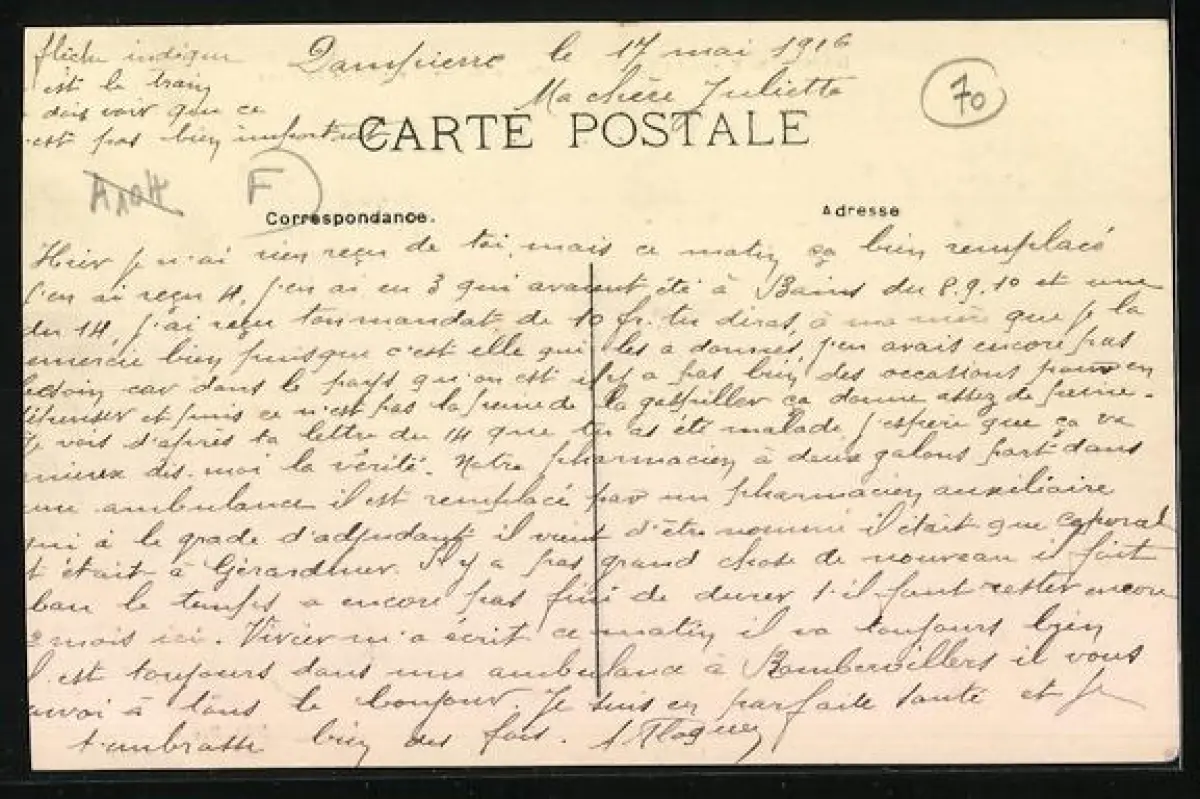 flèche indique
est le train
dois voir que ce
est pas bien important
Dampierre le 17 mai 1916
Ma chère Juliette
70
CARTE POSTALE
F
Correspondance.
Adresse
Hier je n'ai rien reçu de toi, mais ce matin ça bien remplacé
j'en ai reçu 4, j'en ai eu 3 qui avaient été à Bains du 8.9.10 et une
du 14, j'ai reçu ton mandat de 10 fr. tu diras à ma mère que je la
remercie bien puisque c'est elle qui les a donnés, j'en avais encore pas
besoin car dans le pays qu'on est il y a pas bien des occasions pour en
dépenser et puis ce n'est pas la peine de la gaspiller ça donne assez de peine.
Je vois d'après ta lettre du 14 que tu as été malade j'espère que ça va
mieux dis-moi la vérité. Notre pharmacien à deux galons part dans
une ambulance il est remplacé par un pharmacien auxiliaire
qui à le grade d'adjudant il vient d'être nommé il était que caporal
et était à Gérardmer. Il y a pas grand chose de nouveau il fait
bau le temps a encore pas fini de durer s'il faut rester encore
mois ici. Vivier m'a écrit ce matin il va toujours bien
il est toujours dans une ambulance à Rambervillers il vous
envoi à tous le bonjour. Je suis en parfaite santé et je
t'embrasse bien des fois.